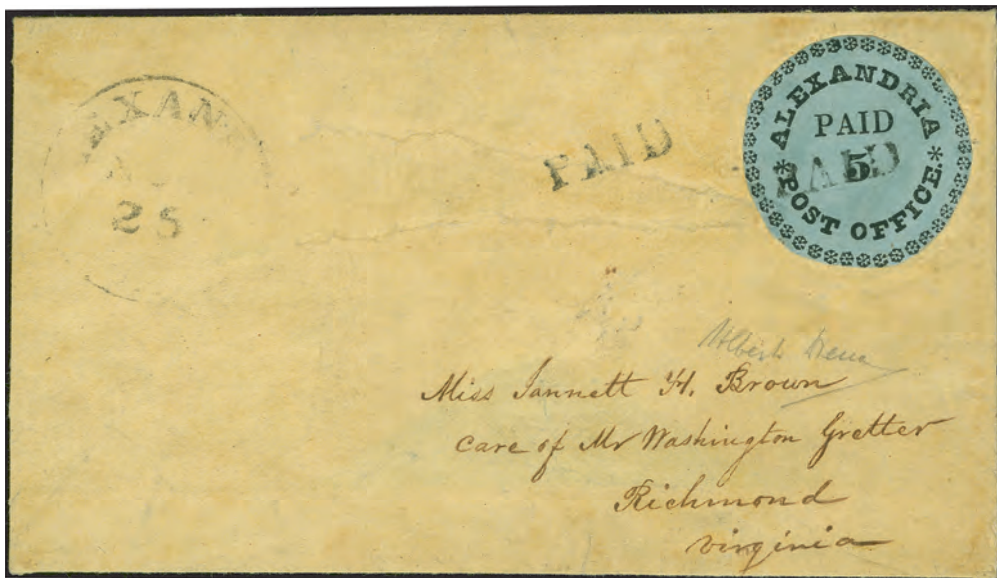 EXAN
25
PAID
ALEXANDRIA
PAID
PAID
5
* POST OFFICE. *
Miss Jannett H. Brown
care of Mr Washington Gretter
Richmond
Virginia